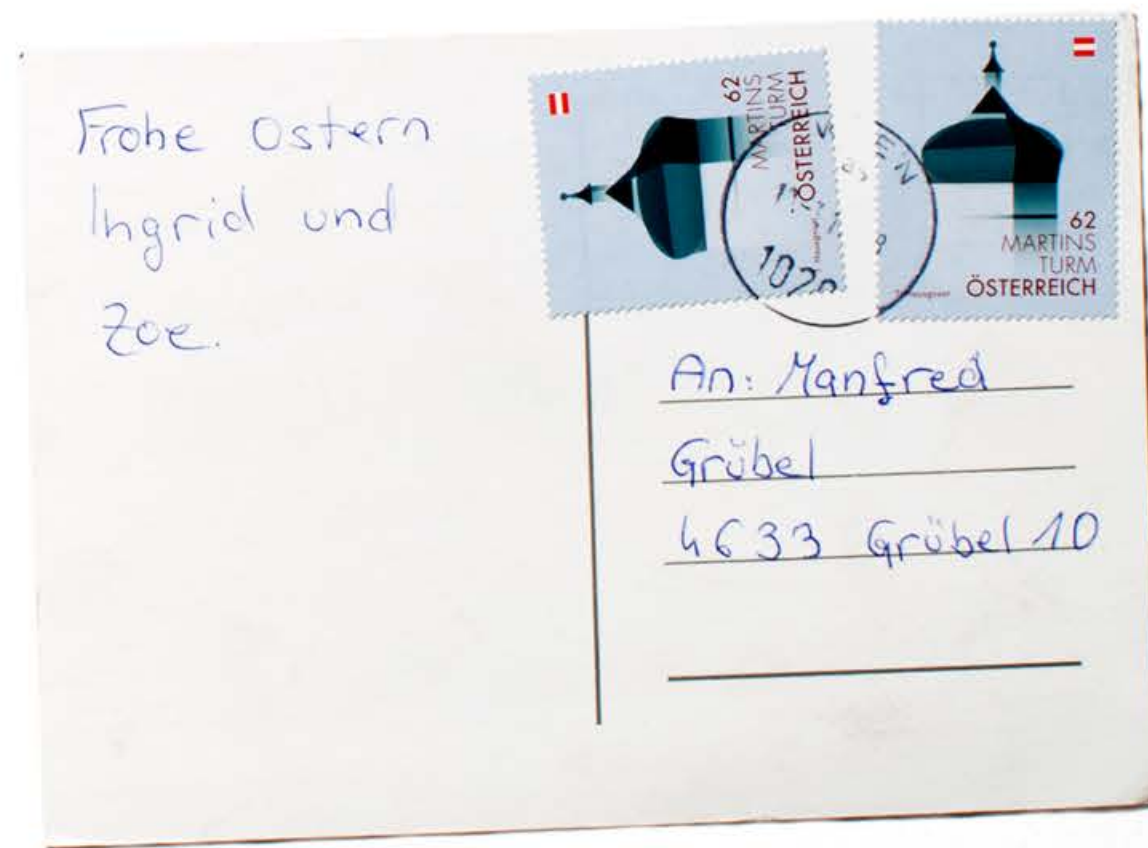 Frohe Ostern
Ingrid und
Zoe.
62
MARTINS
TURM
ÖSTERREICH
62
MARTINS
TURM
ÖSTERREICH
An: Manfred
Grübel
4633 Grübel 10